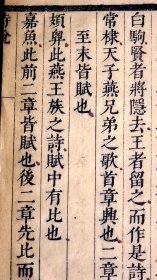 白駒賢者將隱去王者留之而作是詩
常棣天子燕兄弟之歌首章興也二章
至末皆賦也
頍弁此燕王族之詩賦中有比也
嘉魚此前二章皆賦也後二章先比而